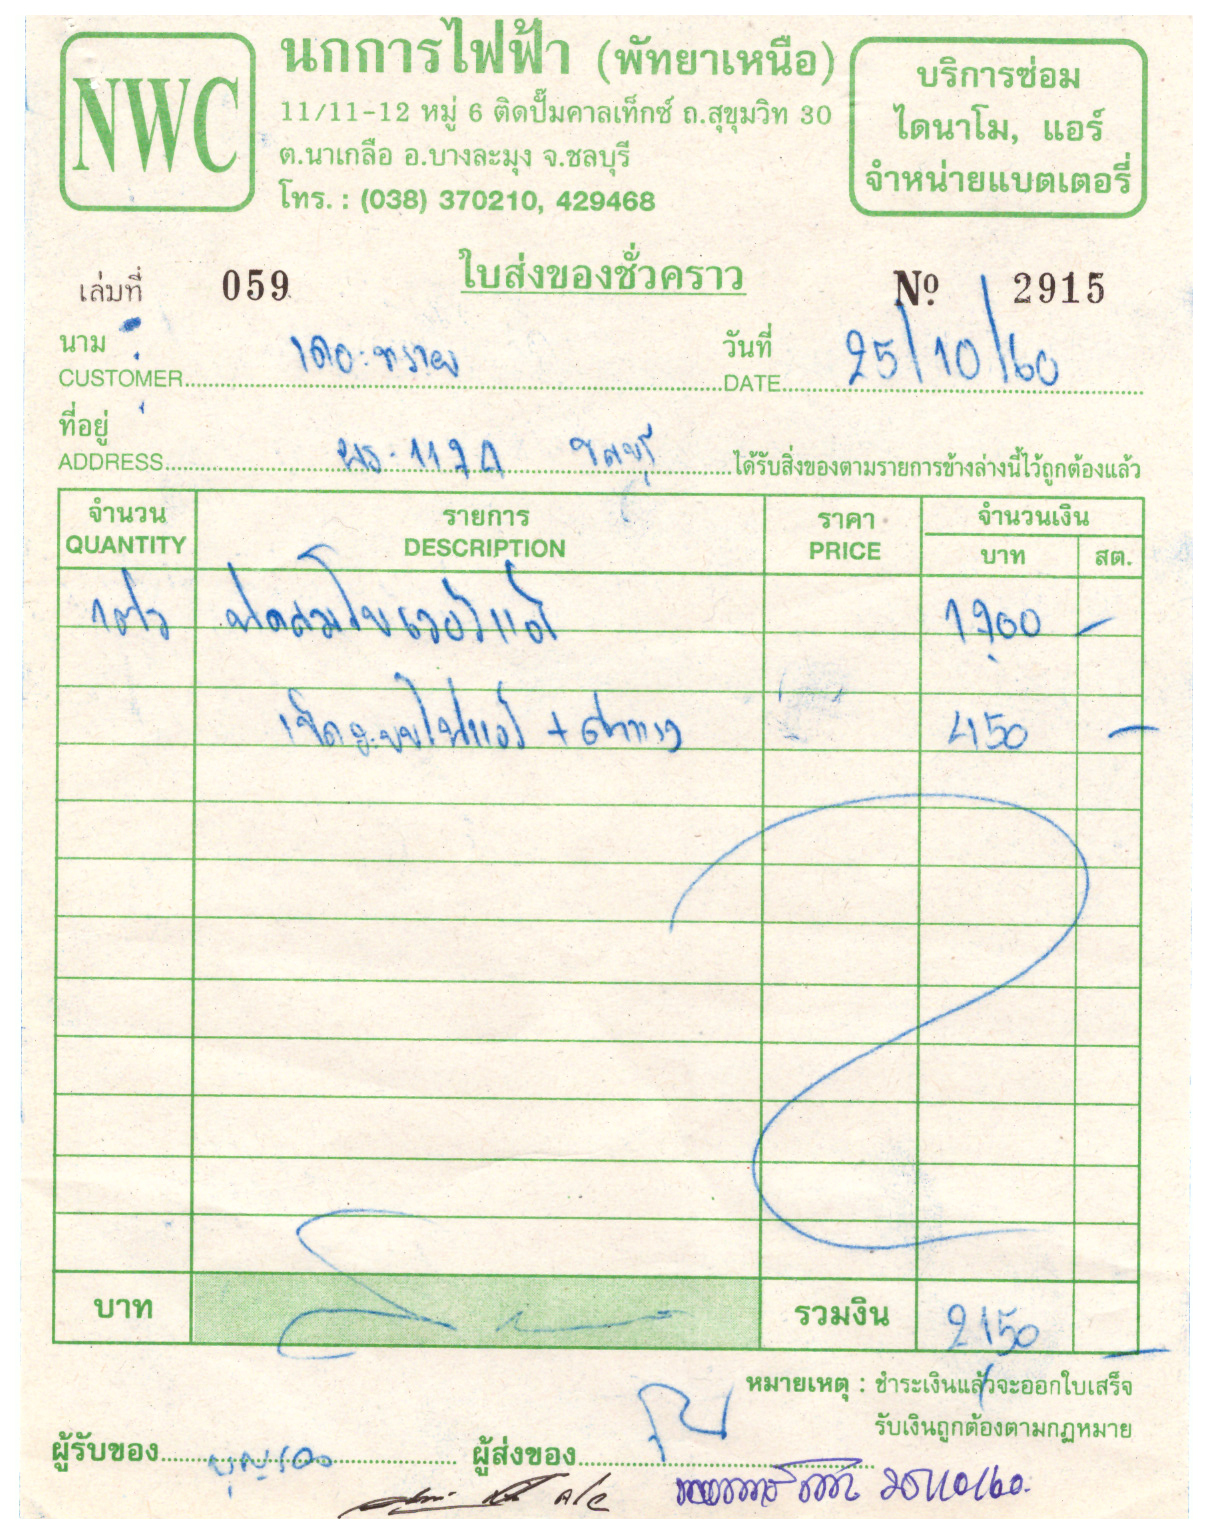 NWC
นกการไฟฟ้า (พัทยาเหนือ)
11/11-12 หมู่ 6 ติดปั๊มคาลเท็กซ์ ถ.สุขุมวิท 30
ต.นาเกลือ อ.บางละมุง จ.ชลบุรี
โทร. : (038) 370210, 429468
บริการซ่อม
ไดนาโม, แอร์
จำหน่ายแบตเตอรี่
เล่มที่ 059
ใบส่งของชั่วคราว
Nº 2915
นาม
CUSTOMER
วันที่ 25/10/60
DATE
ที่อยู่ ชลบุรี
ADDRESS ได้รับสิ่งของตามรายการข้างล่างนี้ไว้ถูกต้องแล้ว
จำนวน รายการ ราคา จำนวนเงิน
QUANTITY DESCRIPTION PRICE บาท สต.
1ตัว 1700 -
เช็คระบบไฟแอร์ + 450 -
บาท รวมงิน 2150 -
หมายเหตุ : ชำระเงินแล้วจะออกใบเสร็จ
รับเงินถูกต้องตามกฎหมาย
ผู้รับของ ผู้ส่งของ
25/10/60.